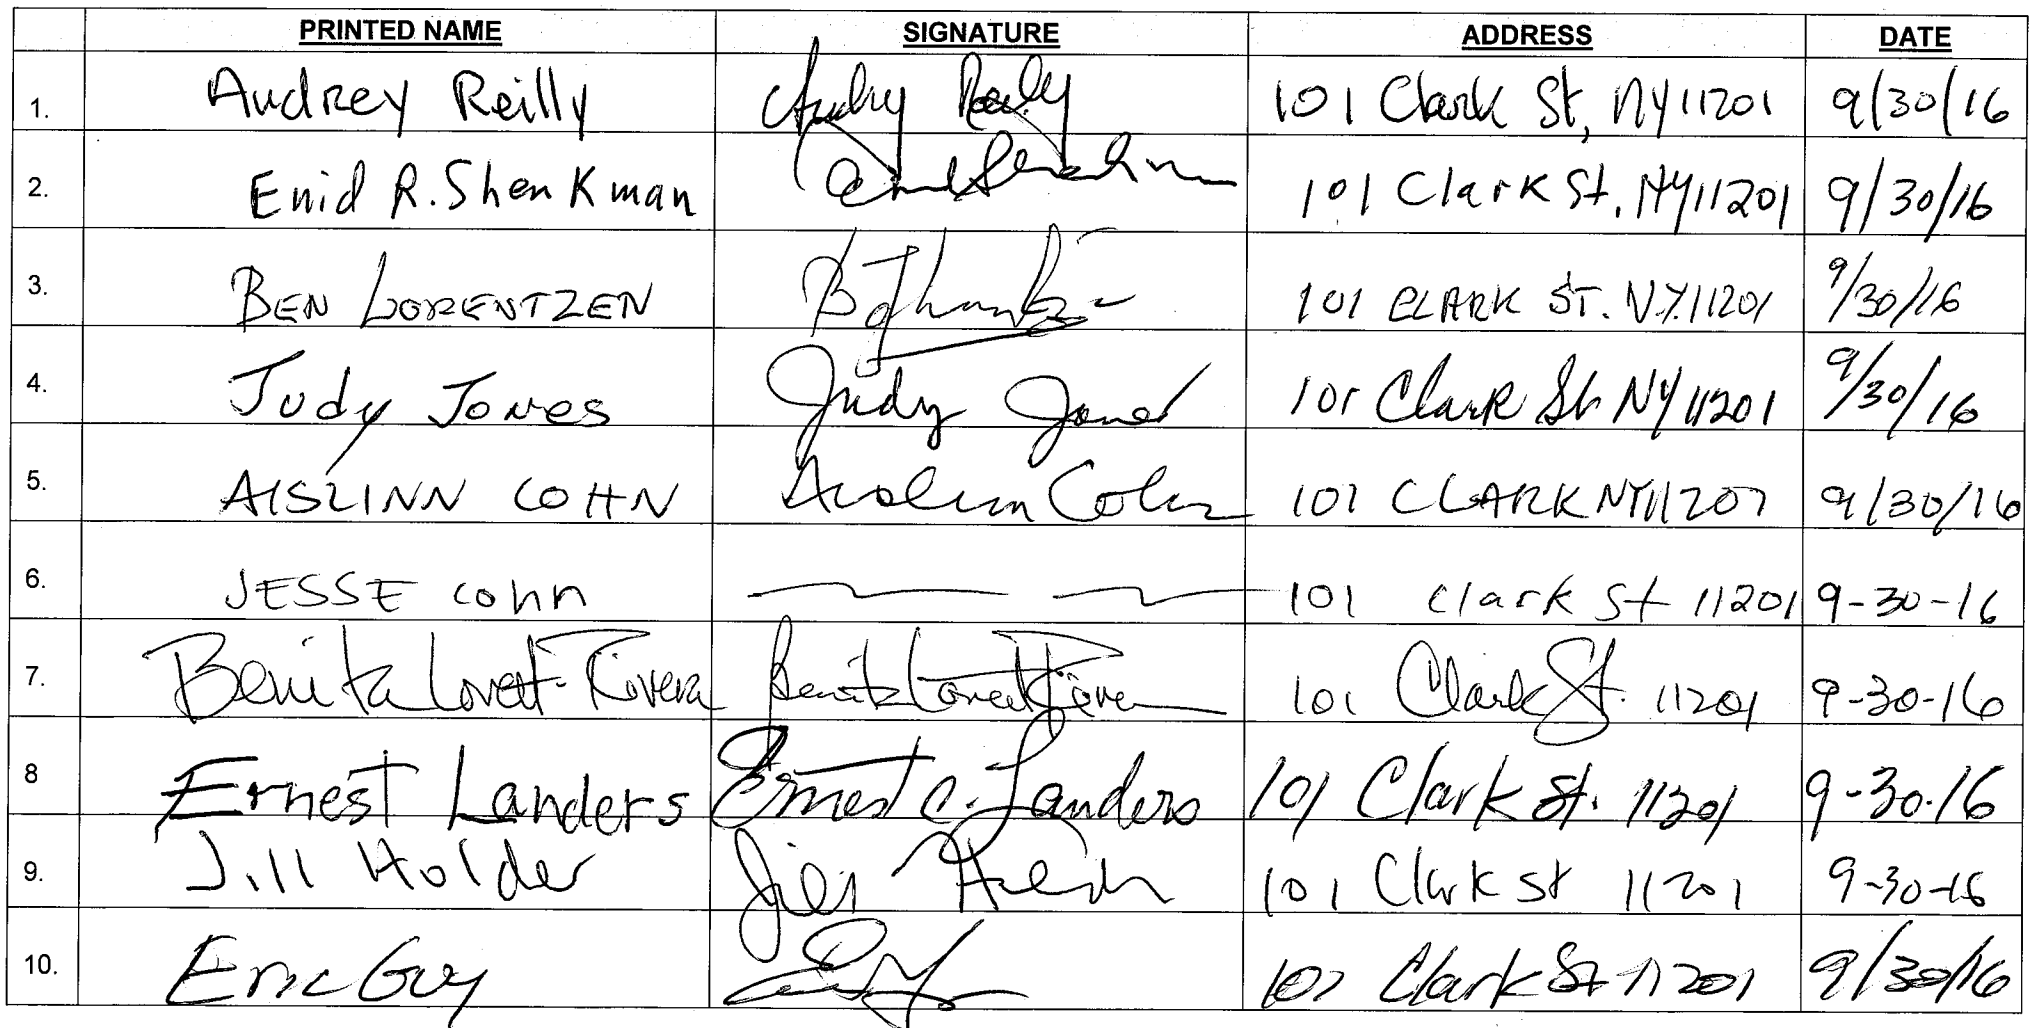 PRINTED NAME SIGNATURE ADDRESS DATE
1. Audrey Reilly Audrey Reilly 101 Clark St, NY 11201 9/30/16
2. Enid R. Shenkman 101 Clark St. NY 11201 9/30/16
3. BEN LORENTZEN 101 CLARK ST. NY. 11201 9/30/16
4. Judy Jones Judy Jones 101 Clark St NY 11201 9/30/16
5. AISLINN COHN Aislinn Cohn 101 CLARK NY 11201 9/30/16
6. JESSE Cohn 101 Clark St 11201 9-30-16
7. Benita Lovett-Rivera Benita Lovett Rivera 101 Clark St. 11201 9-30-16
8 Ernest Landers Ernest C. Landers 101 Clark St. 11201 9-30-16
9. Jill Holder Jill Holder 101 Clark St 11201 9-30-16
10. Eric Guy 101 Clark St 11201 9/30/16